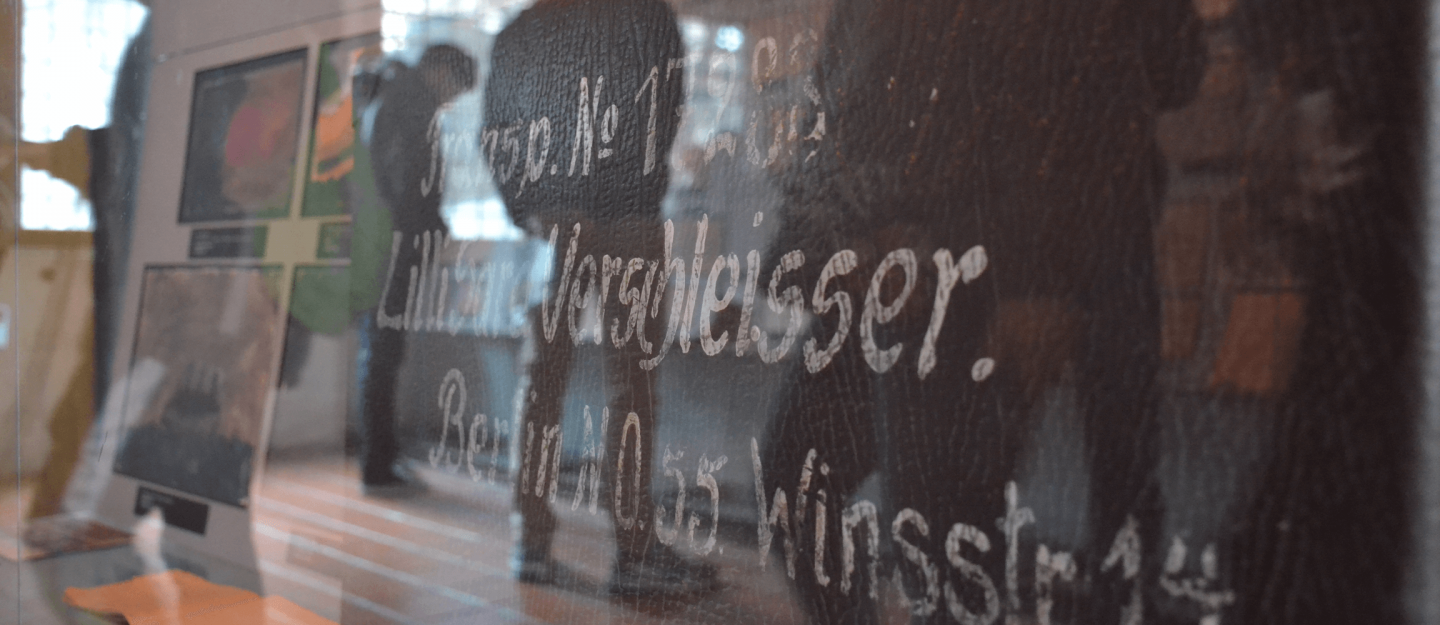 Transp. No
Verschleisser.
Berlin NO.55. Winsstr 14